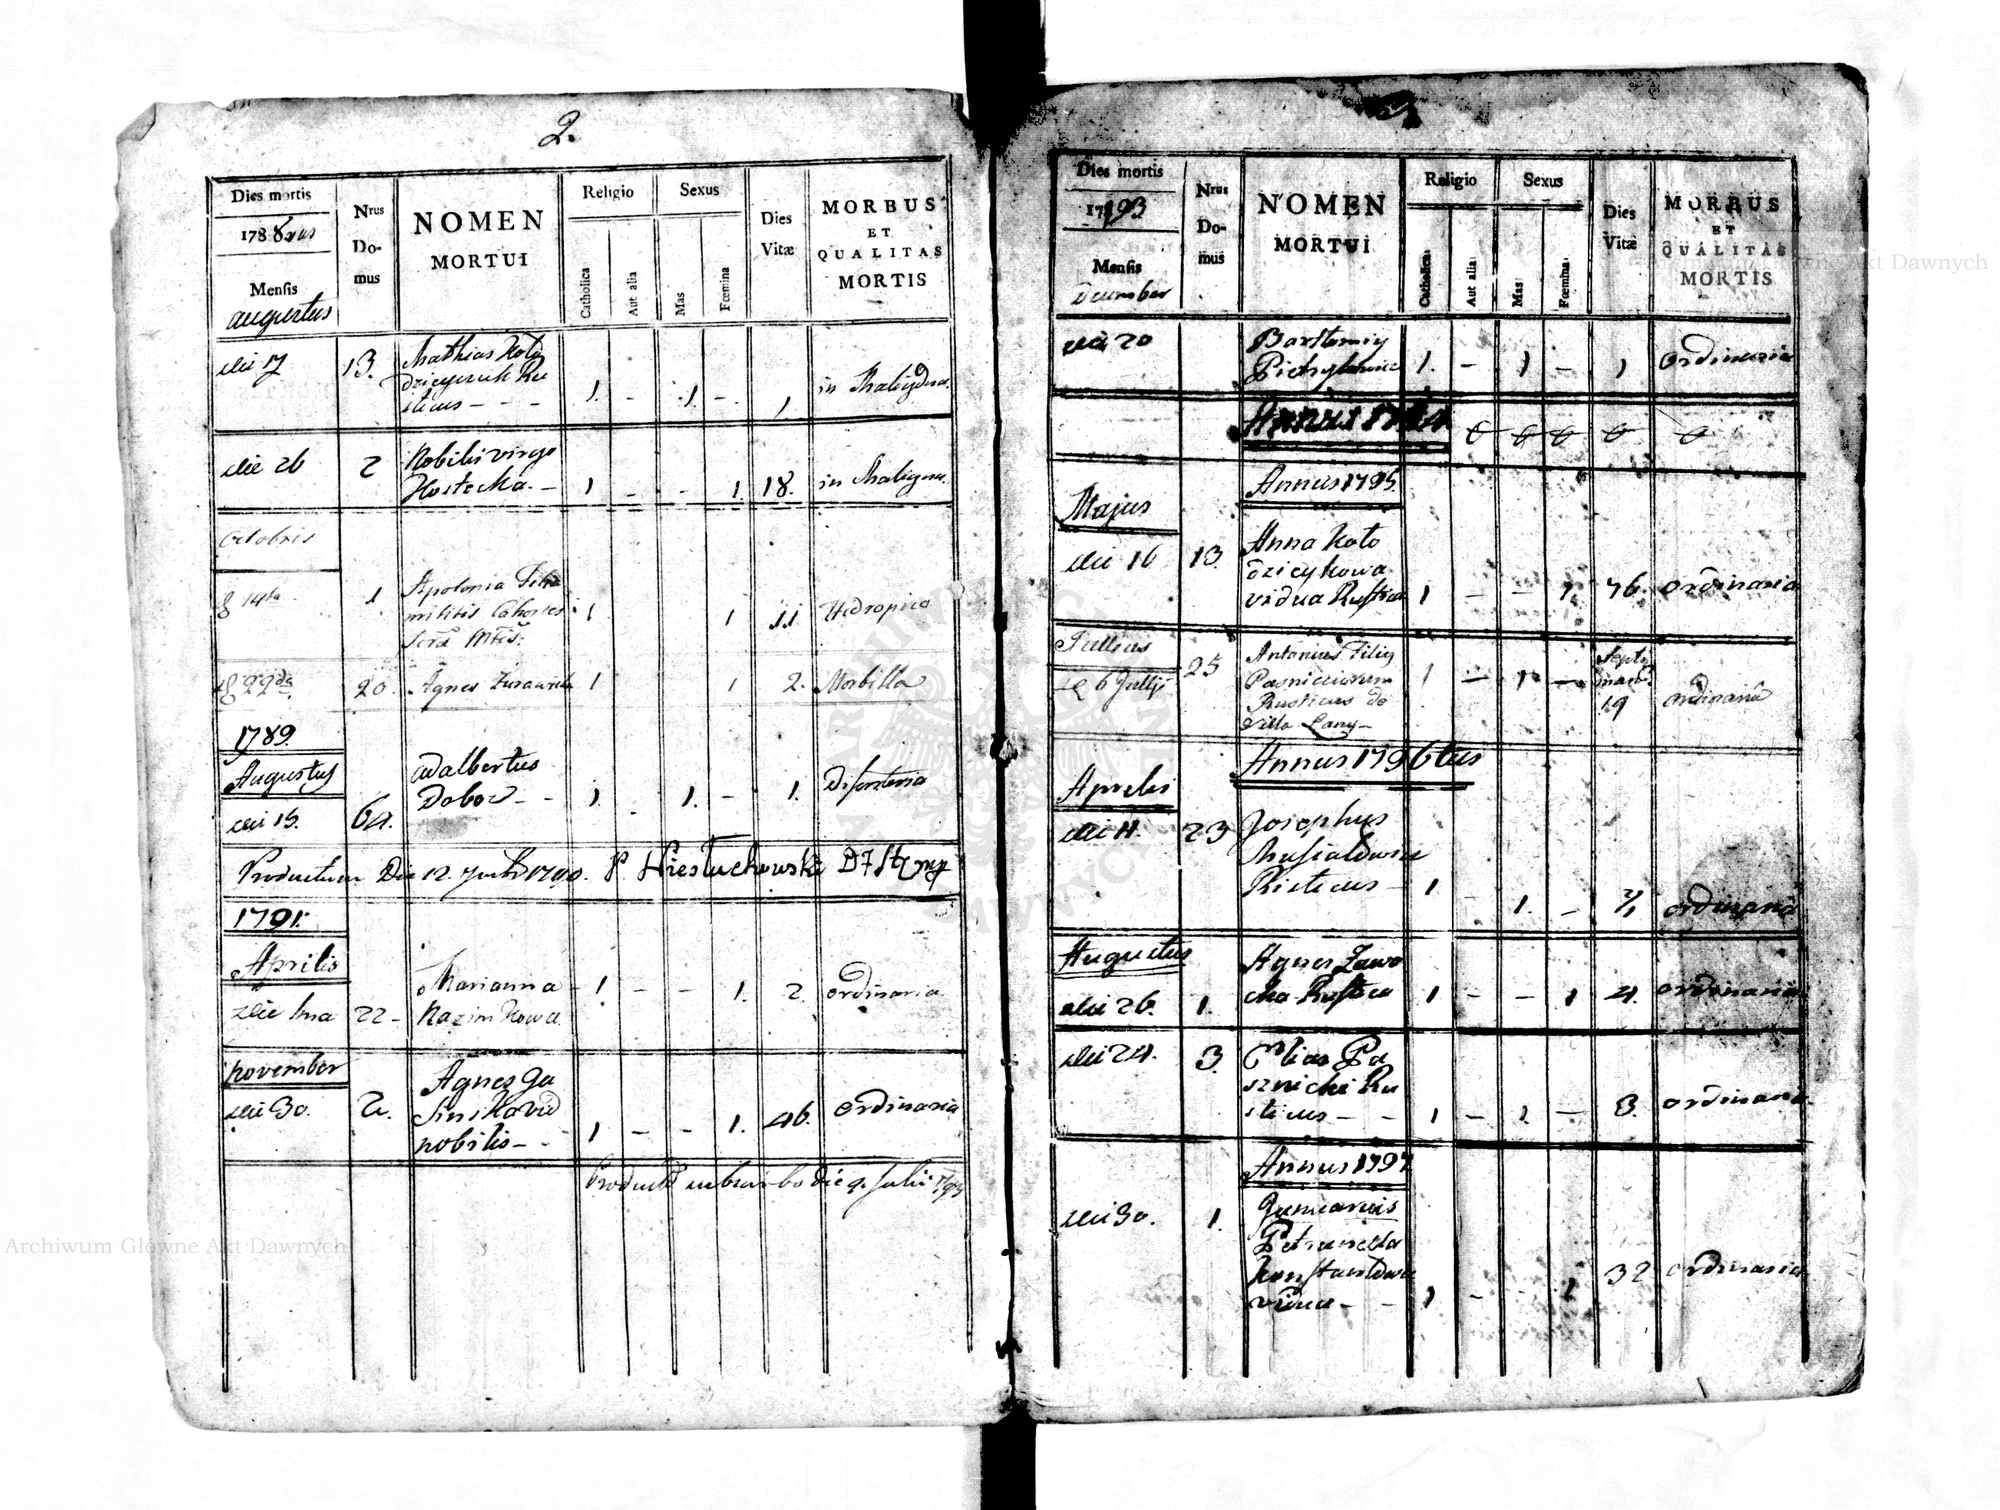 2.
Dies mortis
1788vus
Mensis
augustus
Nrus
Do-
mus
NOMEN
MORTUI
Religio
Catholica
Aut alia
Sexus
Mas
Fœmina
Dies
Vitæ
MORBUS
ET
QUALITAS
MORTIS
die 17 13. Mathias Koło
dzieyczik Ru
sticus - - - 1. - 1. - 1 in Maligna.
die 26 2 Nobilis virgo
Hostecka. - 1 - - 1. 18. in Maligna.
Octobris
14ta 1 Apolonia Filia
militis Cohortis 1 1 11 Hidropica
22da 20. Agnes Zurawik 1 1 2. Morbilla
1789.
Augustus
die 15. 64. Adalbertus
Dobosz - - 1. 1. - 1. Disenteria
Productum Die 12. 1790.
1791.
Aprilis
die 1ma 22 - Marianna
Kazimkowa - 1. - - 1. 2. ordinaria
november
die 30. 2. Agnes Ga
sinska vid
nobilis - - 1 - - 1. 46. ordinaria
die 9. Julii 1793
Dies mortis
1793
Mensis
December
Nrus
Do-
mus
NOMEN
MORTUI
Religio
Catholica
Aut alia
Sexus
Mas
Fœmina
Dies
Vitæ
MORBUS
ET
QUALITAS
MORTIS
die 20 Bartłomiy
1. - 1 - 1 ordinaria
Annus 1794
Annus 1795.
Majus
die 16 13. Anna Koło
dzieykowa
vidua Rustica 1 - - 1 76. ordinaria
Jullius
6 Jullji 25 Antonius Filius
Pasnicciorum
Rusticus de
Villa Lany - 1 - 1 - Septi
man.
19 ordinaria
Annus 1796tus
Aprilis
die 11. 23 Josephus
Rusticus - 1 - 1. - ordinaria
Augustus
die 26. 1. Agnes Zawo
cka Rustica 1 - - 1 4. ordinaria
die 24. 3. Elias Pa
sznicki Ru
sticus - - 1 - 1 - 3. ordinaria
Annus 1797
die 30. 1. Januarius
Petronella
vidua - - 1 - - 1 32 ordinaria
Archiwum Główne Akt Dawnych
Archiwum Główne Akt Dawnych